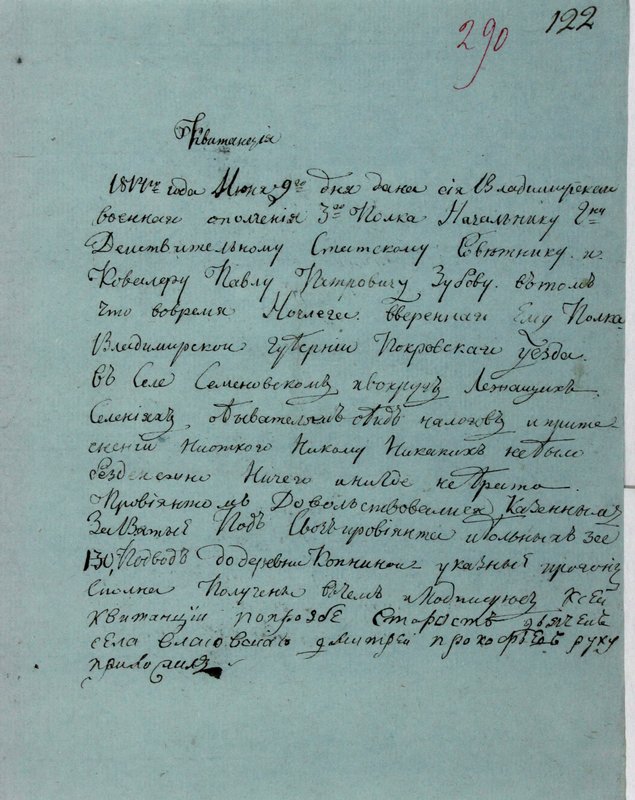 290 122
Квитанция
181 года Июня 9го дня дана сія Владимирскаи
военнаго ополченія 3го Полка Начальнику Гну
Действительному Статскому Советнику и
Ковалеру Павлу Петровичу Зубову. въ томъ
что вовремя Ночлега вверенного Ему Полка
Владимирской Губерніи Покровскаго уезда
въ Селе Семеновскомъ ивокругъ Лежащихъ
Селеніяхъ, обывателямъ обидъ налоговъ иприте
сненіи Ниоткого Никому Никакихъ небыло
безденежно Ничего инигде небрато
Провіянтомъ Довольствовались Казеннымъ
Завзятые Подъ Свозъ провіянта ибольныхъ
130, Подводъ додеревни Копниной указные прогоны
сполна Получены вчемъ иподписуюсь Ксей
квитанціи попрозбе старостъ
села дмитрей прокофьевъ руку
приложилъ